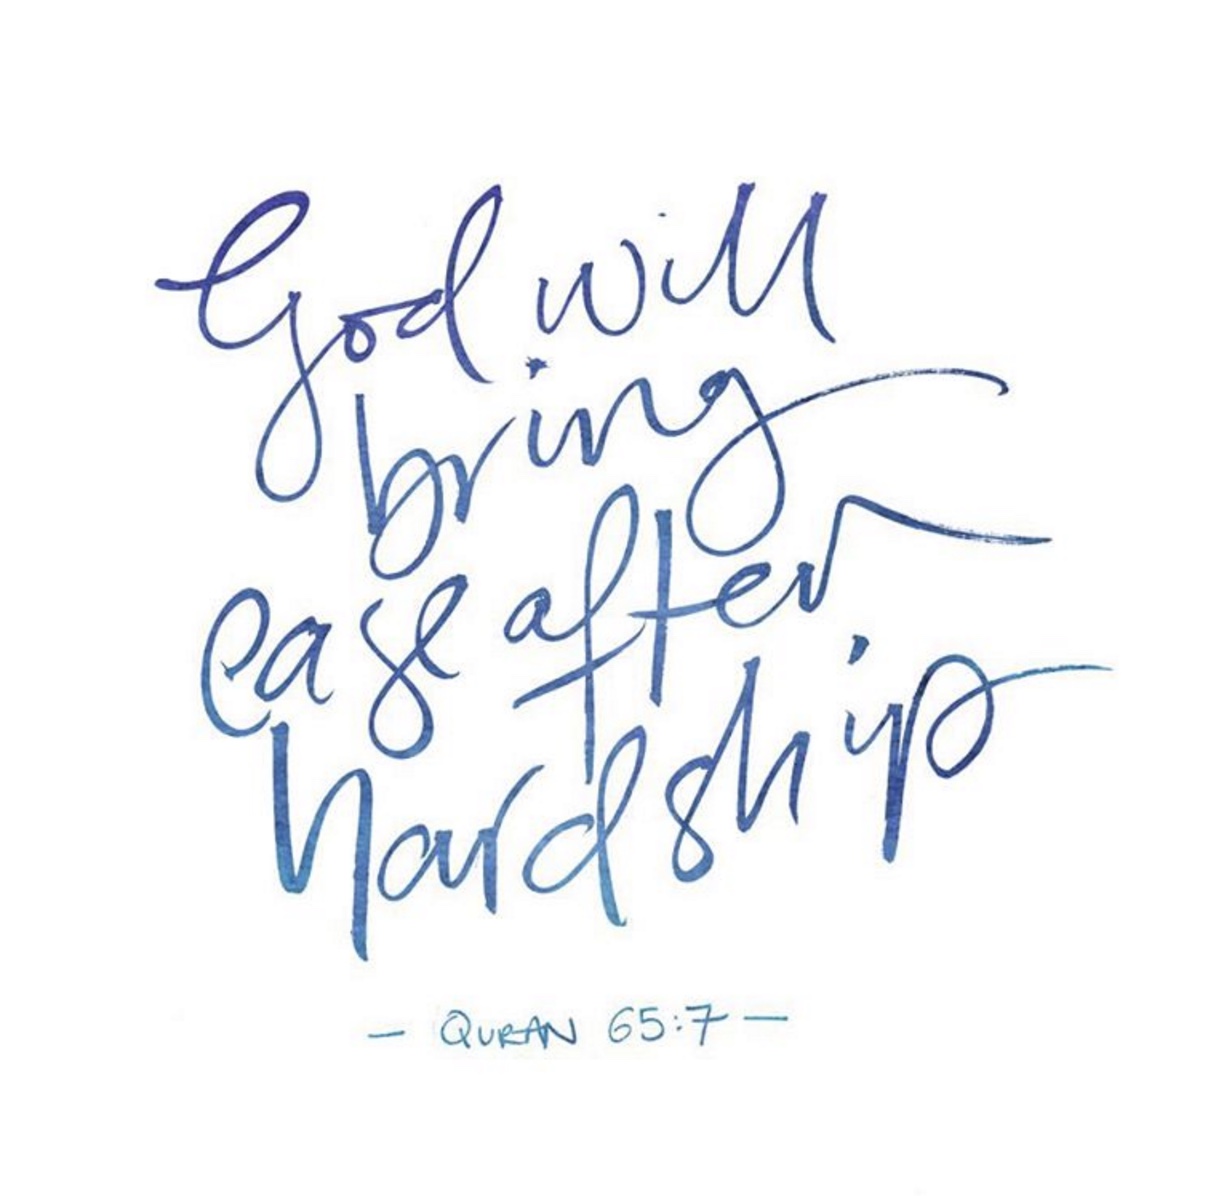 God will
bring
ease after
hardship
— QURAN 65:7 —